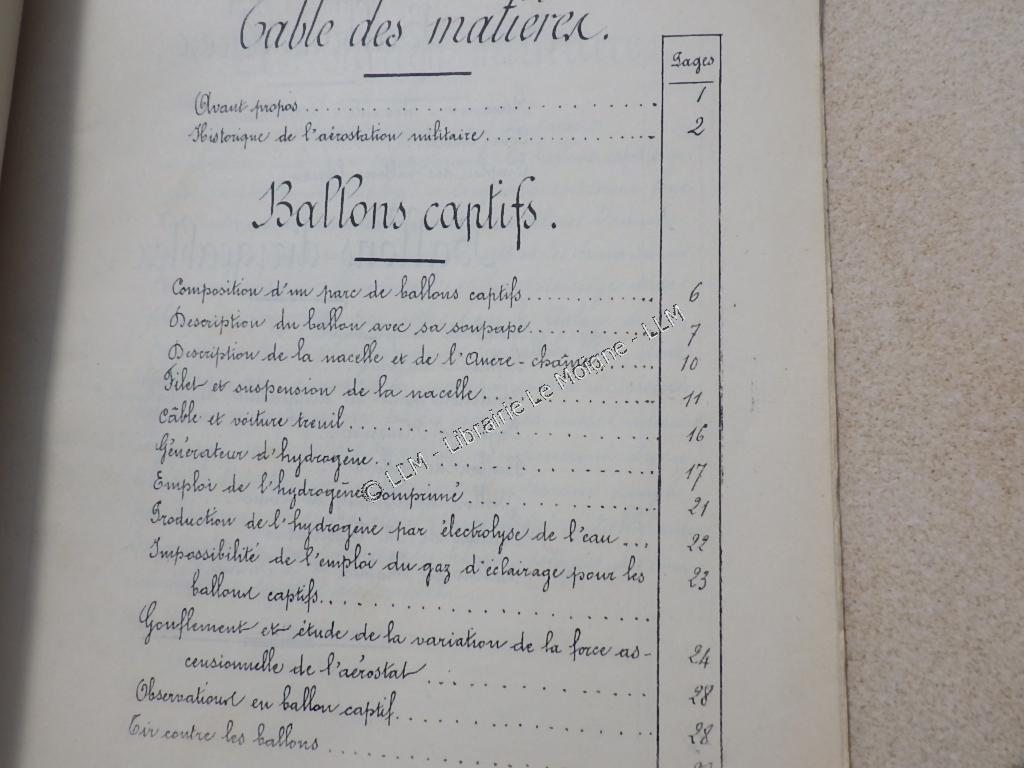 Table des matières.
Pages
Avant propos 1
Historique de l'aérostation militaire 2
Ballons captifs.
Composition d'un parc de ballons captifs 6
Description du ballon avec sa soupape 7
Description de la nacelle et de l'Ancre-chaîne 10
Filet et suspension de la nacelle 11
Câble et voiture treuil 16
Générateur d'hydrogène 17
Emploi de l'hydrogène comprimé 21
Production de l'hydrogène par électrolyse de l'eau 22
Impossibilité de l'emploi du gaz d'éclairage pour les 23
ballons captifs.
Gonflement et étude de la variation de la force as- 24
censionnelle de l'aérostat
Observations en ballon captif. 28
Tir contre les ballons 28
© LLM - Librairie Le Moigne - LLM